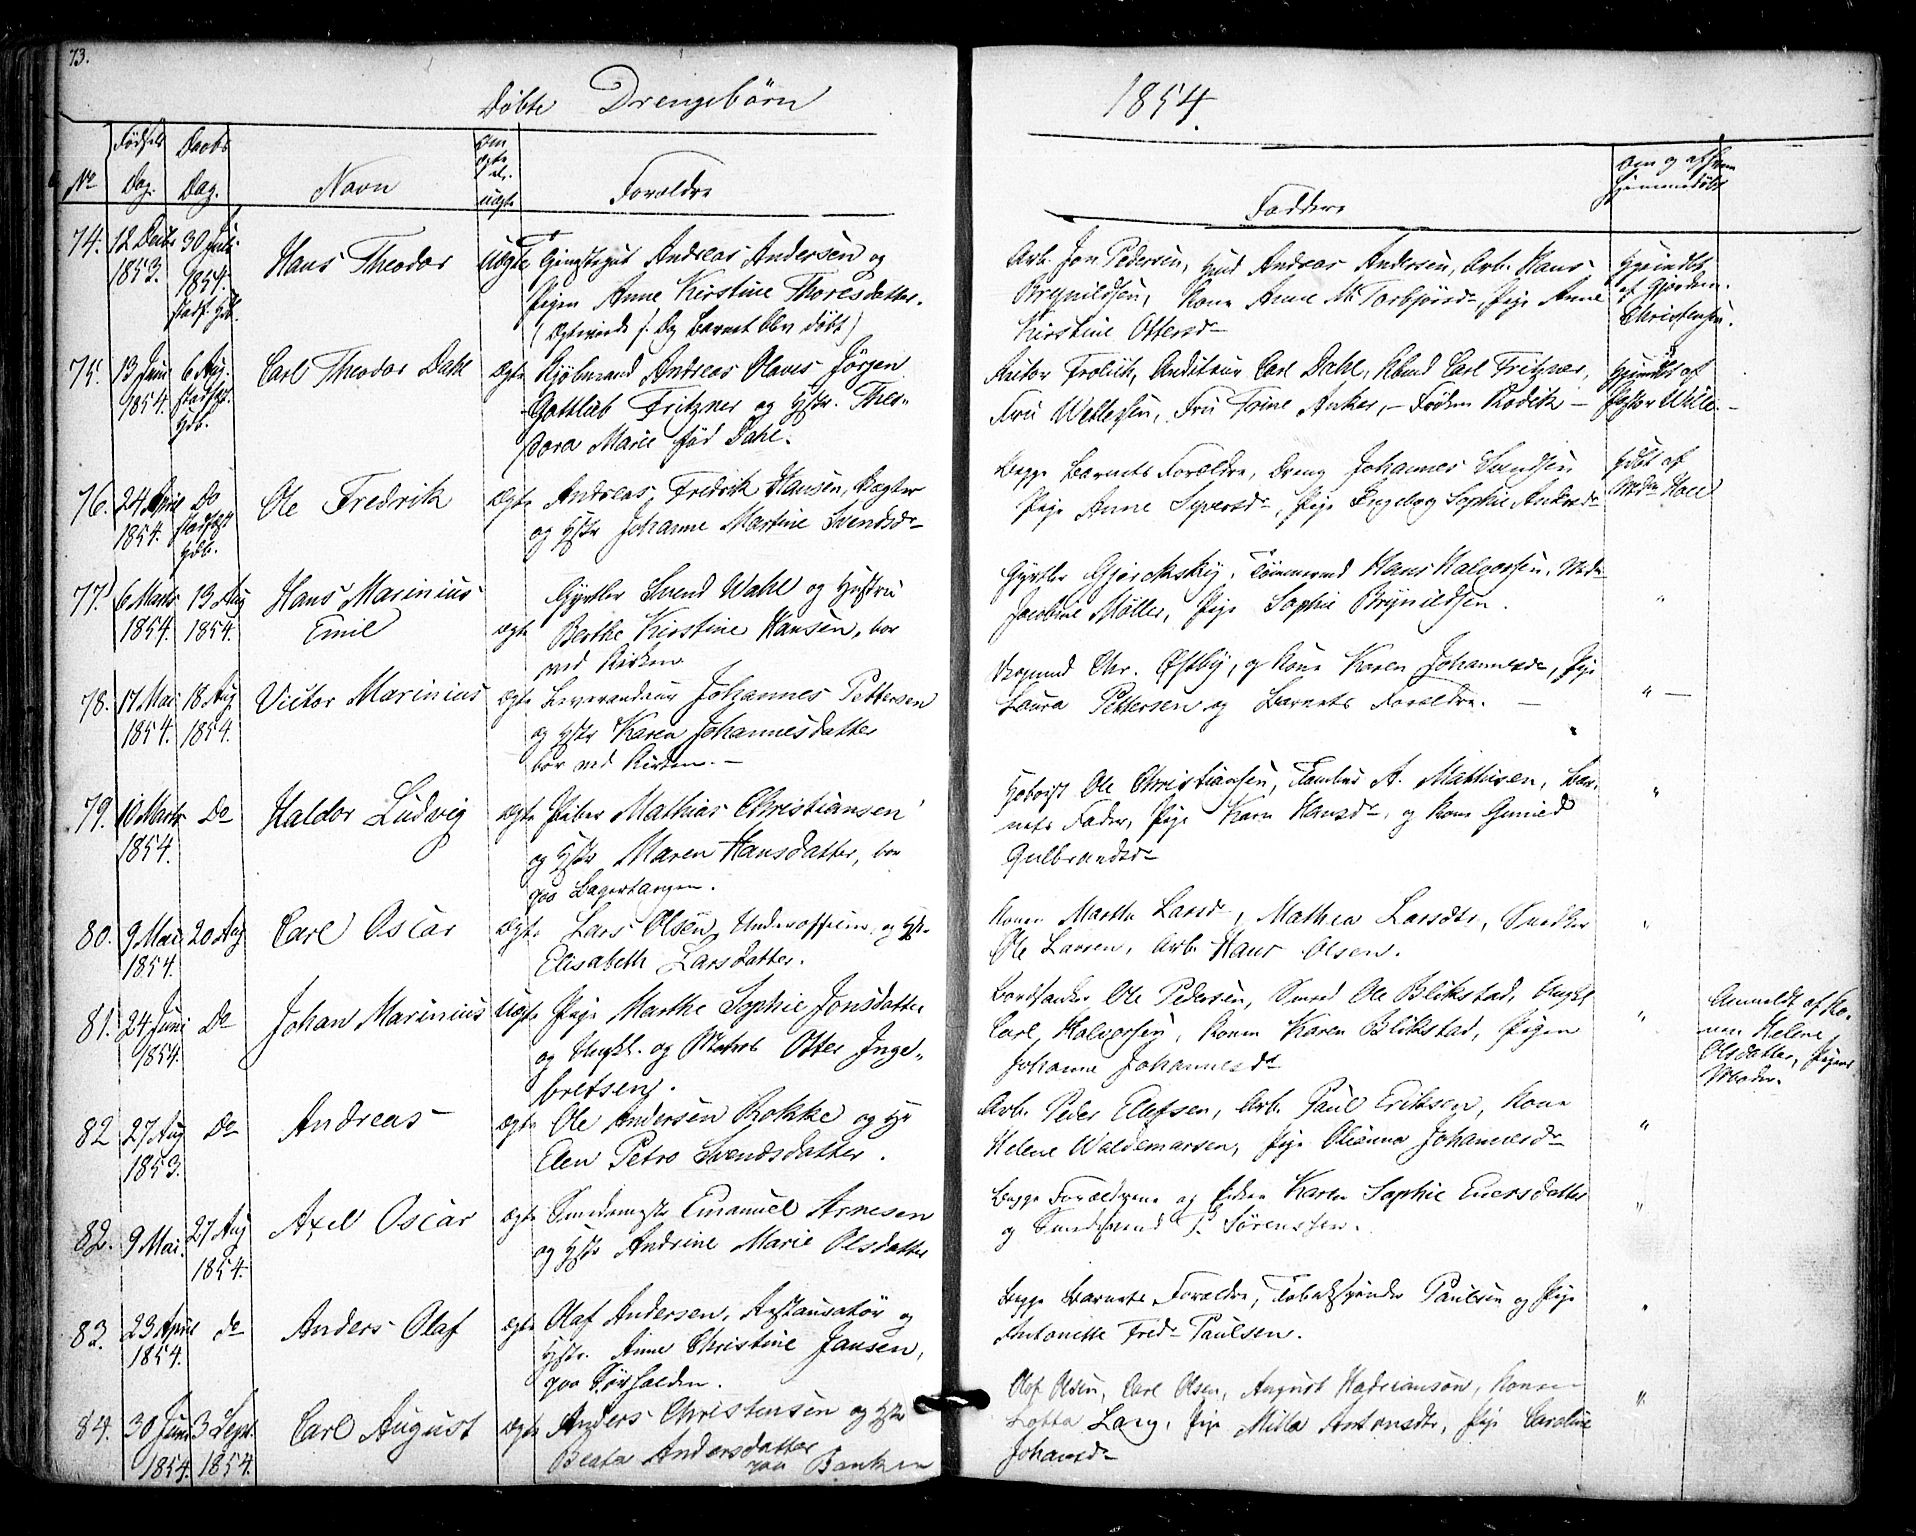 73.
Døbte Drengebørn
1854.
No
Fødsels Dag.
Daabs Dag.
Navn
Om ægte el. uægte
Forældre
Faddere
Om og af hvem hjemmedøbt
74. 12 Decbr 1853. 30 Juli 1854. Stadf. Hdb.
Hans Theodor
uægte
Andreas Andersen og
Pigen Anne Kirstine Thoresdatter.
Arb. Jon Pedersen, Andreas Andersen, Arb. Hans
Brynildsen, Kone Anne M. Torbjørsdr, Pige Anne
Kirstine Ottersdr
Hjemdbt
af Gjordem.
Christensen.
75. 13 Juni 1854. 6 Aug. Stadfst. Hdb.
Carl Theodor Dahl
ægte
Kjøbmand Andreas Olaves Jørgen
Gottlieb Fritzner og Hstr. Theo-
dora Marie fød Dahl.
Carl Dahl, Carl Fritzner,
Fru Wettlesen, Fru Trine Anker, – Frøken –
Hjemdbt af
Pastor Wille. –
76. 24 April 1854. Do Stadfæst Hdb.
Ole Fredrik
ægte
Andreas Fredrik Hansen,
og Hstr Johanne Martine Svendsdr
Begge Barnets Forældre, Dreng Johannes Svendsen
Pige Anne Sypersdr, Pige Ingeborg Sophie Andersdr
Hdbt af
77. 6 Marts 1854. 13 Aug 1854.
Hans Marinius
Emil
ægte
Gjørtler Svend Wahl og Hustru
Berthe Kirstine Hansen, bor
ved Kirken
Gjørtler Hans Halvorsen, Mad.
Jacobine Møller, Pige Sophie Brynildsen.
"
78. 17 Mai 1854. 18 Aug 1854.
Victor Marinius
ægte
Leverandeur Johannes Pettersen
og Hstr Karen Johannesdatter
bor ved Kirken. –
Chr. Østby, og Kone Karen Johannesdr, Pige
Laura Pettersen og Barnets Forældre. –
" –
79. 10 Marts 1854. Do
Haldor Ludvig
ægte
Mathias Christiansen
og Hstr Maren Hansdatter, bor
paa Bagertangen.
Ole Christiansen, A. Mathisen, Bar-
nets Fader, Pige Karn Hansdr, og Kone Gunild
Gulbrandsdr
"
80. 9 Mai 1854. 20 Aug
Carl Oscar
ægte
Lars Olsen, Underofficer, og Hstr.
Elisabeth Larsdatter.
Konen Martha Larsdr, Mathea Larsdtr, Snedker
Ole Larsen, Arb. Hans Olsen.
"
81. 24 Juni 1854. Do
Johan Marinius
uægte
Pige Marthe Sophie Jonsdatter
og Ungkl. og Matros Otter Inge-
bretsen.
Ole Pedersen, Smed Ole Blikstad, Ungkl
Carl Halvorsen, Konen Karen Blikstad, Pigen
Johanne Johannesdr
"
Anmeldt af Ko-
nen Helene
Olsdatter, Pigens
Moder.
82 27 Aug 1853. Do
Andreas
ægte
Ole Andersen Bokke og Hstr
Elen Petro Svendsdatter.
Arb. Peder Ellefsen, Arb. Paul Eriksen, Kone
Helene Waldemarsen, Pige Olianna Johannesdr
"
82. 9 Mai. 27 Aug 1854.
Axel Oscar
ægte
Emanuel Arnesen
og Hstr Andrine Marie Olsdatter
Begge Forældrene og Karen Sophie Eversdatter
og Sørenssen.
"
83. 23 April 1854. do
Anders Olaf
ægte
Olaf Andersen, Restauratør og
Hstr. Anne Christine Jansen,
paa Sørhalden.
Begge Barnets Forældre, Tobakspinder Paulsen og Pige
Antonette Fredr Paulsen.
"
84. 30 Juni 1854. 3 Sept. 1854.
Carl August
ægte
Anders Christensen og Hstr
Beata Andersdatter
paa Banken
Olof Olsen, Carl Olsen, August Hadriansøn, Konen
Lotta Lang, Pige Milla Antonsdtr, Pige Caroline
Johansdr
"